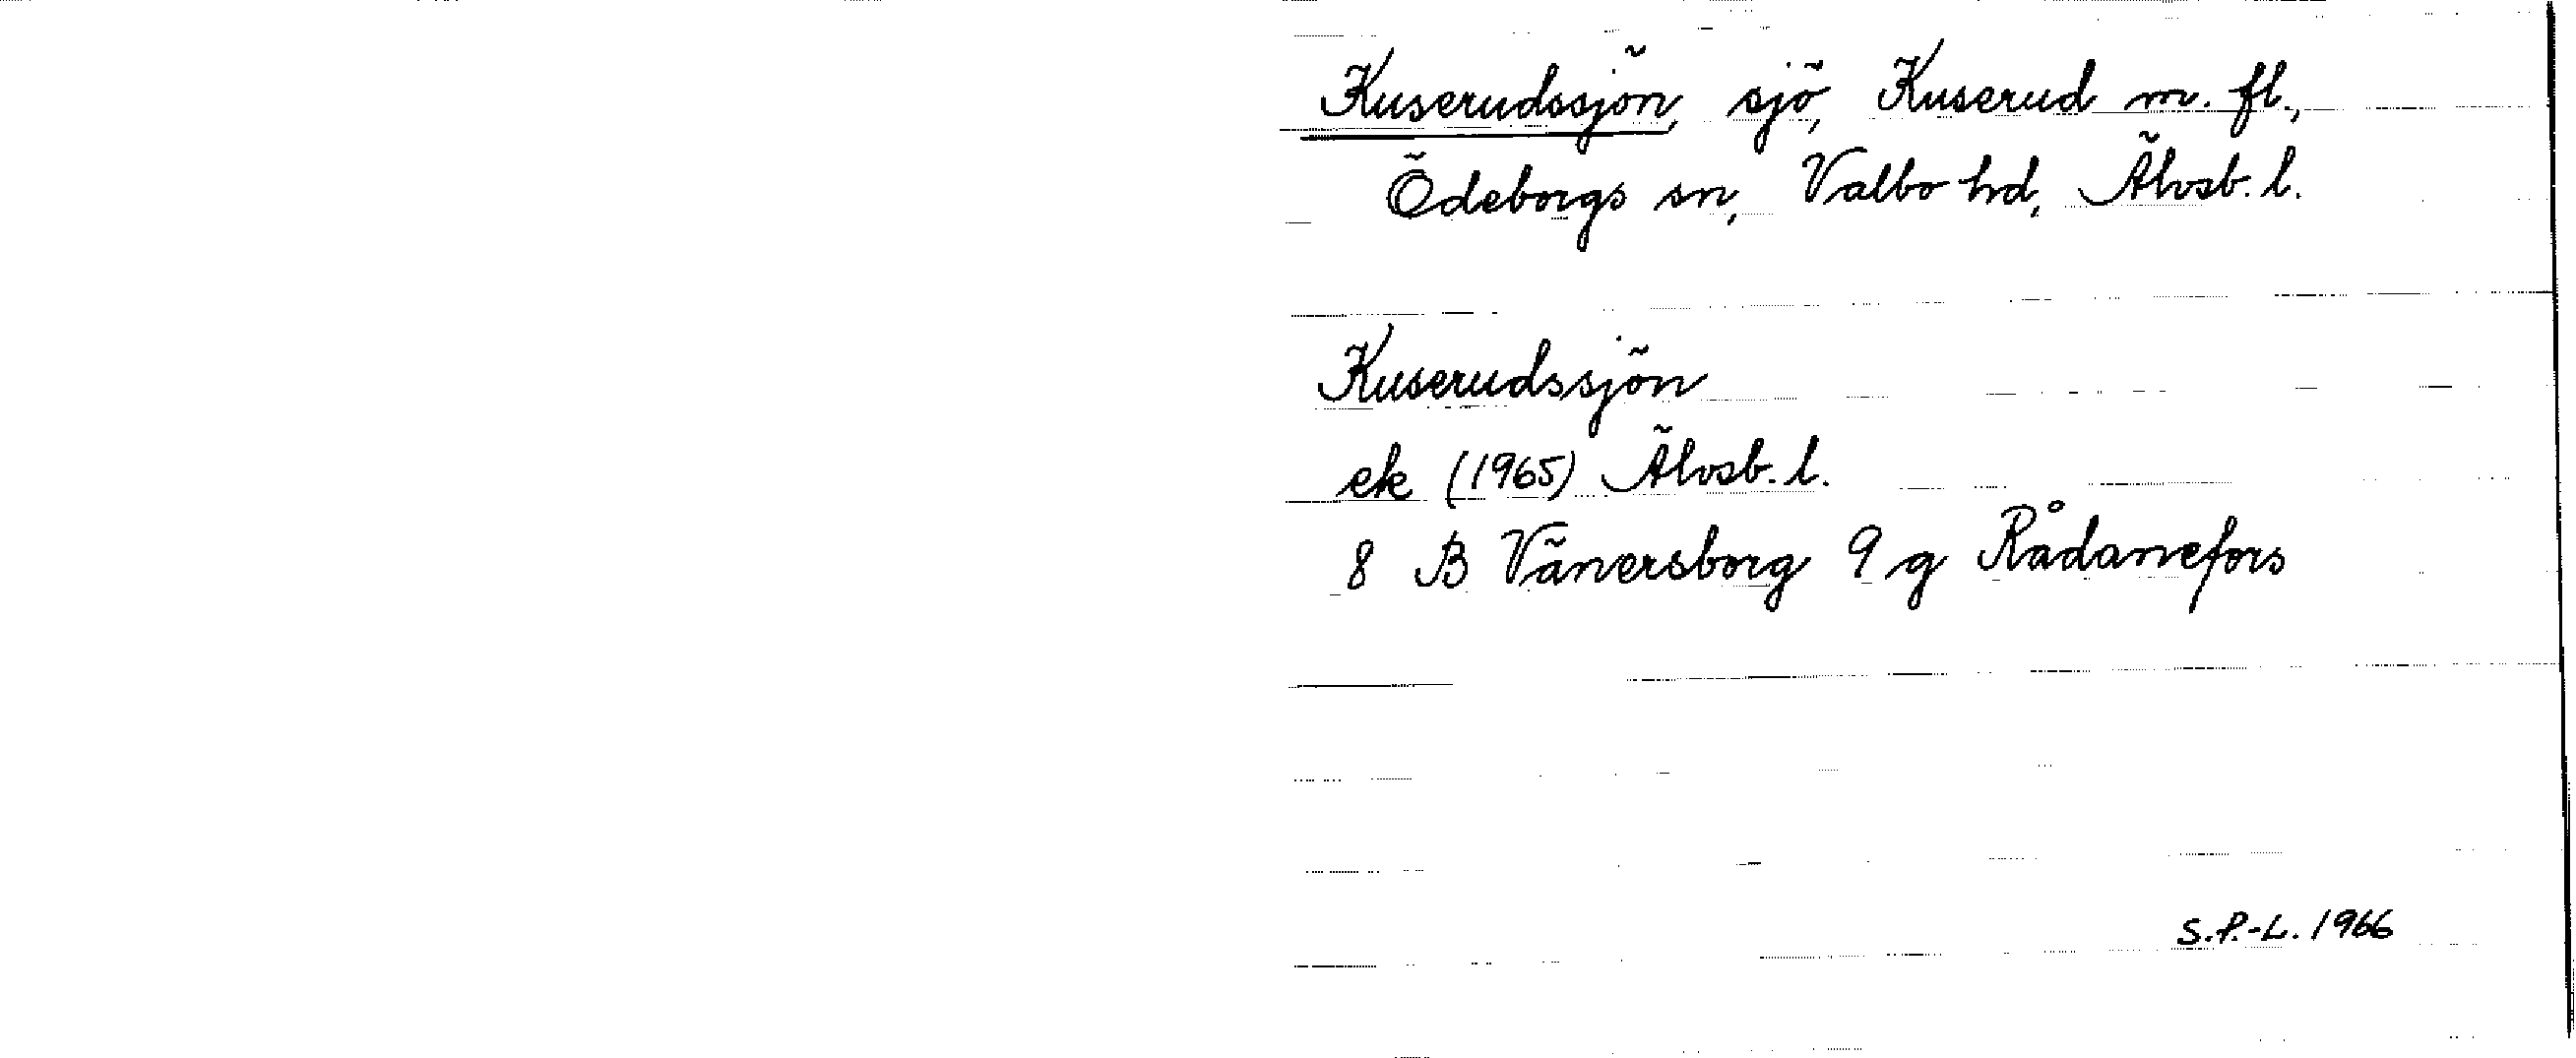 Kuserudssjön, sjö, Kuserud m. fl.,
Ödeborgs sn, Valbo hd, Älvsb. l.
Kuserudssjön
ek (1965) Älvsb. l.
8 B Vänersborg 9 g Rådanefors
S.P.-L. 1966